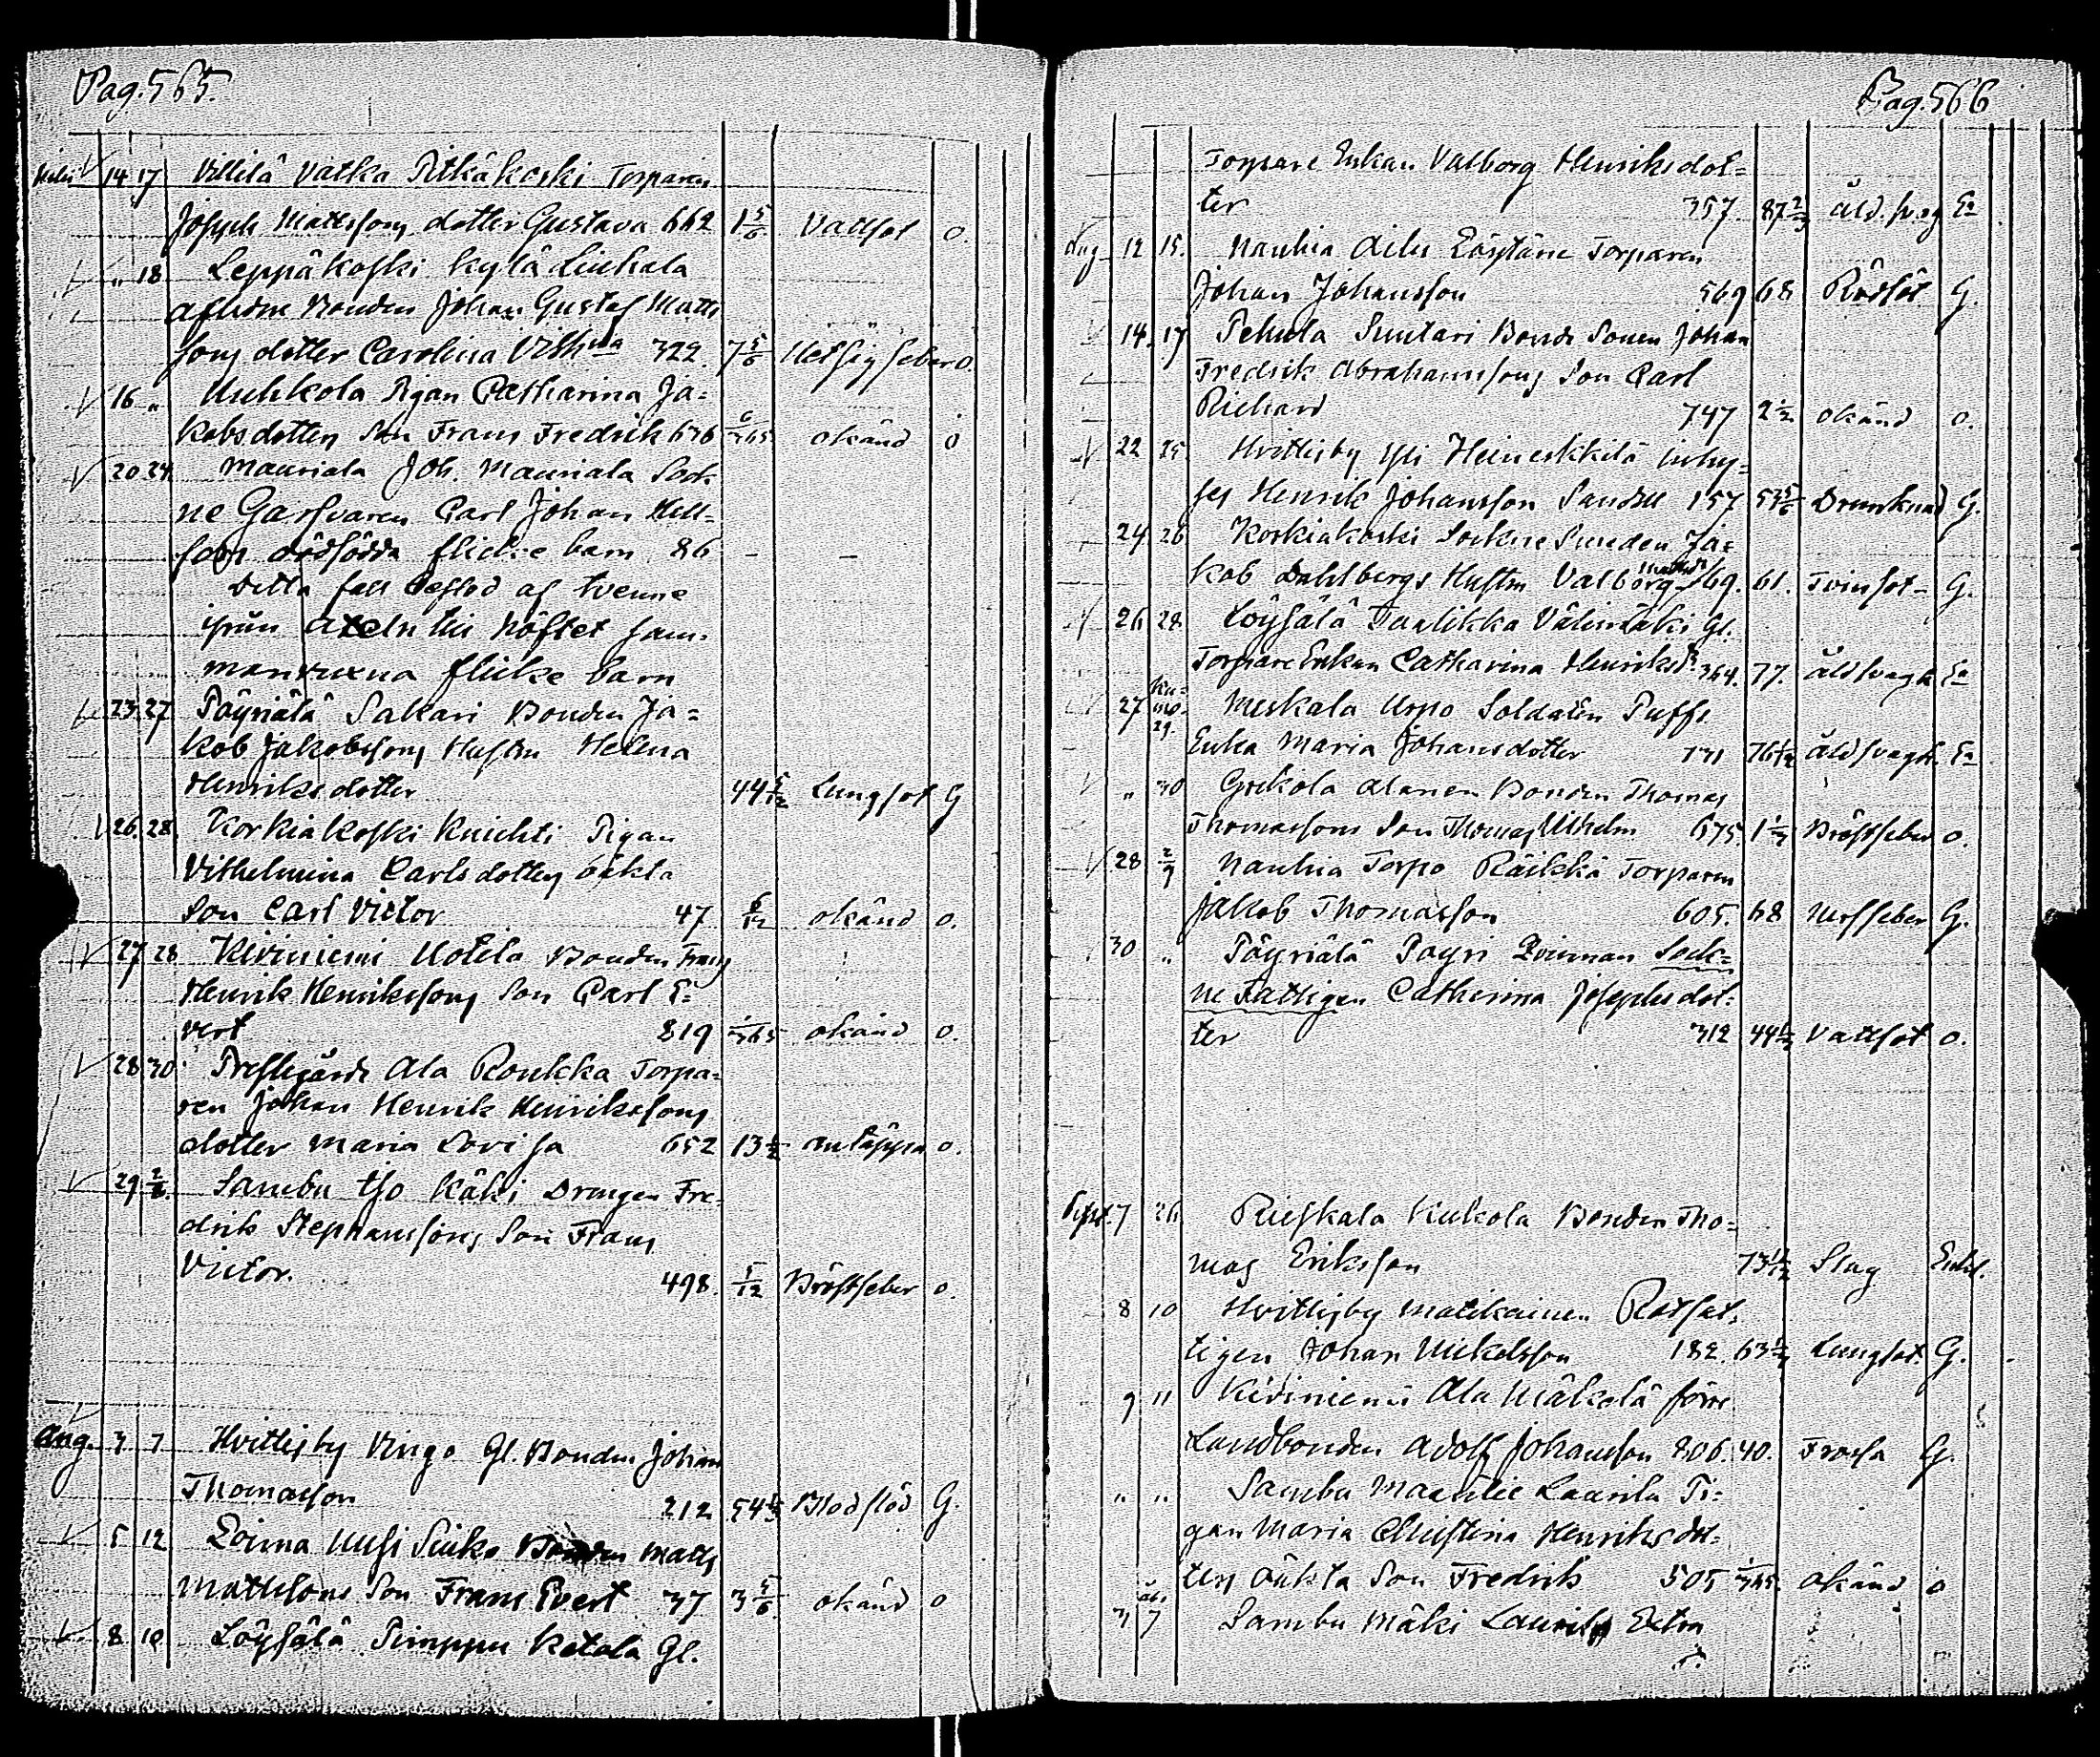 Pag. 565.
Julii 14 17 Villilä Vatka Pitkäkoski Torparen
Joseph Mattssons dotter Gustava 662 1 5/6 Vattsot o.
" 18 Leppäkoski Kylä Liuhala
aflidne Bonden Johan Gustaf Matts
sons dotter Carolina Vilhna 322. 7 5/6 Hetsig feber o.
16 " Uuhkola Pigan Catharina Ja=
kobsdotters Son Frans Fredrik 636 6/365 okänd o
20 24. Mauriala Joh. Mauriala Sock
ne Garfvaren Carl Johan Hell=
stens dödfödda flicke barn 86 - -
Detta fall bestod af tvenne
ifrån axeln till höftet sam-
manvuxna flicke barn
23 27 Pöyriälä Sakari Bonden Ja=
kob Jakobssons Hustru Helena
Henriksdotter 44 5/12 Lungsot G
26. 28. Korkiakoski Knichti Pigan
Vilhelmina Carlsdotters oäkta
Son Carl Victor 47 6/12 okänd o.
27 28 Kiviniemi Uotila Bonden Frans
Henrik Henrikssons Son Carl E=
vert 819 1/365 okänd o.
28 30 Prestegårds Ala Roukka Torpa=
ren Johan Henrik Henrikssons
dotter Maria Lovisa 652 13 1/2 antäppa o.
29 2/8. Sambu Ojo Käki Drengen Fre=
drik Stephanssons Son Frans
Victor. 498. 5/12 Bröstfeber o.
Aug. 3 7 Hvittisby Vingo Gl. Bonden Johan
Thomasson 212 54 1/3 Blodflöd G.
5 12 Loima Uusi Siuko Bonden Matts
Mattssons Son Frans Evert 37 3 5/6 okänd o
8 10 Löysälä Pimppu Ketala Gl.
Pag. 566
Torpare Enkan Valborg Henriksdot=
ter 357. 87 2/3 Åld.svag Ea
Aug 12 15. Nauhia Ailu Torparen
Johan Johansson 569 68 Rödsot G.
14. 17 Pehula Suutari Bonde Sonen Johan
Fredrik Abrahamssons Son Carl
Richard 747 2 1/2 okänd o.
22 25 Hvittisby Yli Heineskkilä inhy=
ses Henrik Johansson Sandell 157 53 5/6 Drunknad G.
24 26 Korkiakoski Sockne Smeden Ja=
kob Dahlbergs Hustru Valborg Mattsdr 69. 61. Tvinsot - G.
26 28 Löysälä Paulikka Välimäki Gl.
Torpare Enkan Catharina Henriksdr 364. 77. åldsvagh Ea
27 Ku=mo. 29. Meskala Uopo Soldaten Puffs
Enka Maria Johansdotter 131 76 1/12 åldsvagh. Ea
" 30 Grekola Alanen Bonden Thomas
Thomassons Son Thomas Vilhelm 675. 1 1/3 Bröstfeber o.
28 2/9 Nauhia Torpo Räikkä Torparen
Jakob Thomasson 605. 68 Nerffeber G.
30 " Pöyriälä Payri Loiman Sock=
ne Fattigen Catharina Josephsdot=
ter 312 44 1/3 Vattsot o.
Sept. 7 26. Rieskala Kukola Bonden Tho=
mas Eriksson 73 11/12 Slag Enkl.
8 10 Hvittisby Matikainen Rotfat,
tigen Johan Mickelsson 182. 63 1/3 Lungsot G.
9 11 Kiviniemi Ala Mäkelä förre
Landbonden Adolf Johansson 806. 40. Frossa G.
" " Sambu Maantie Laurila Pi=
gan Maria Christina Henriksdot=
ters oäkta Son Fredrik 505 1/365. okänd o
31 7 Sambu Mäki Laurila Extra